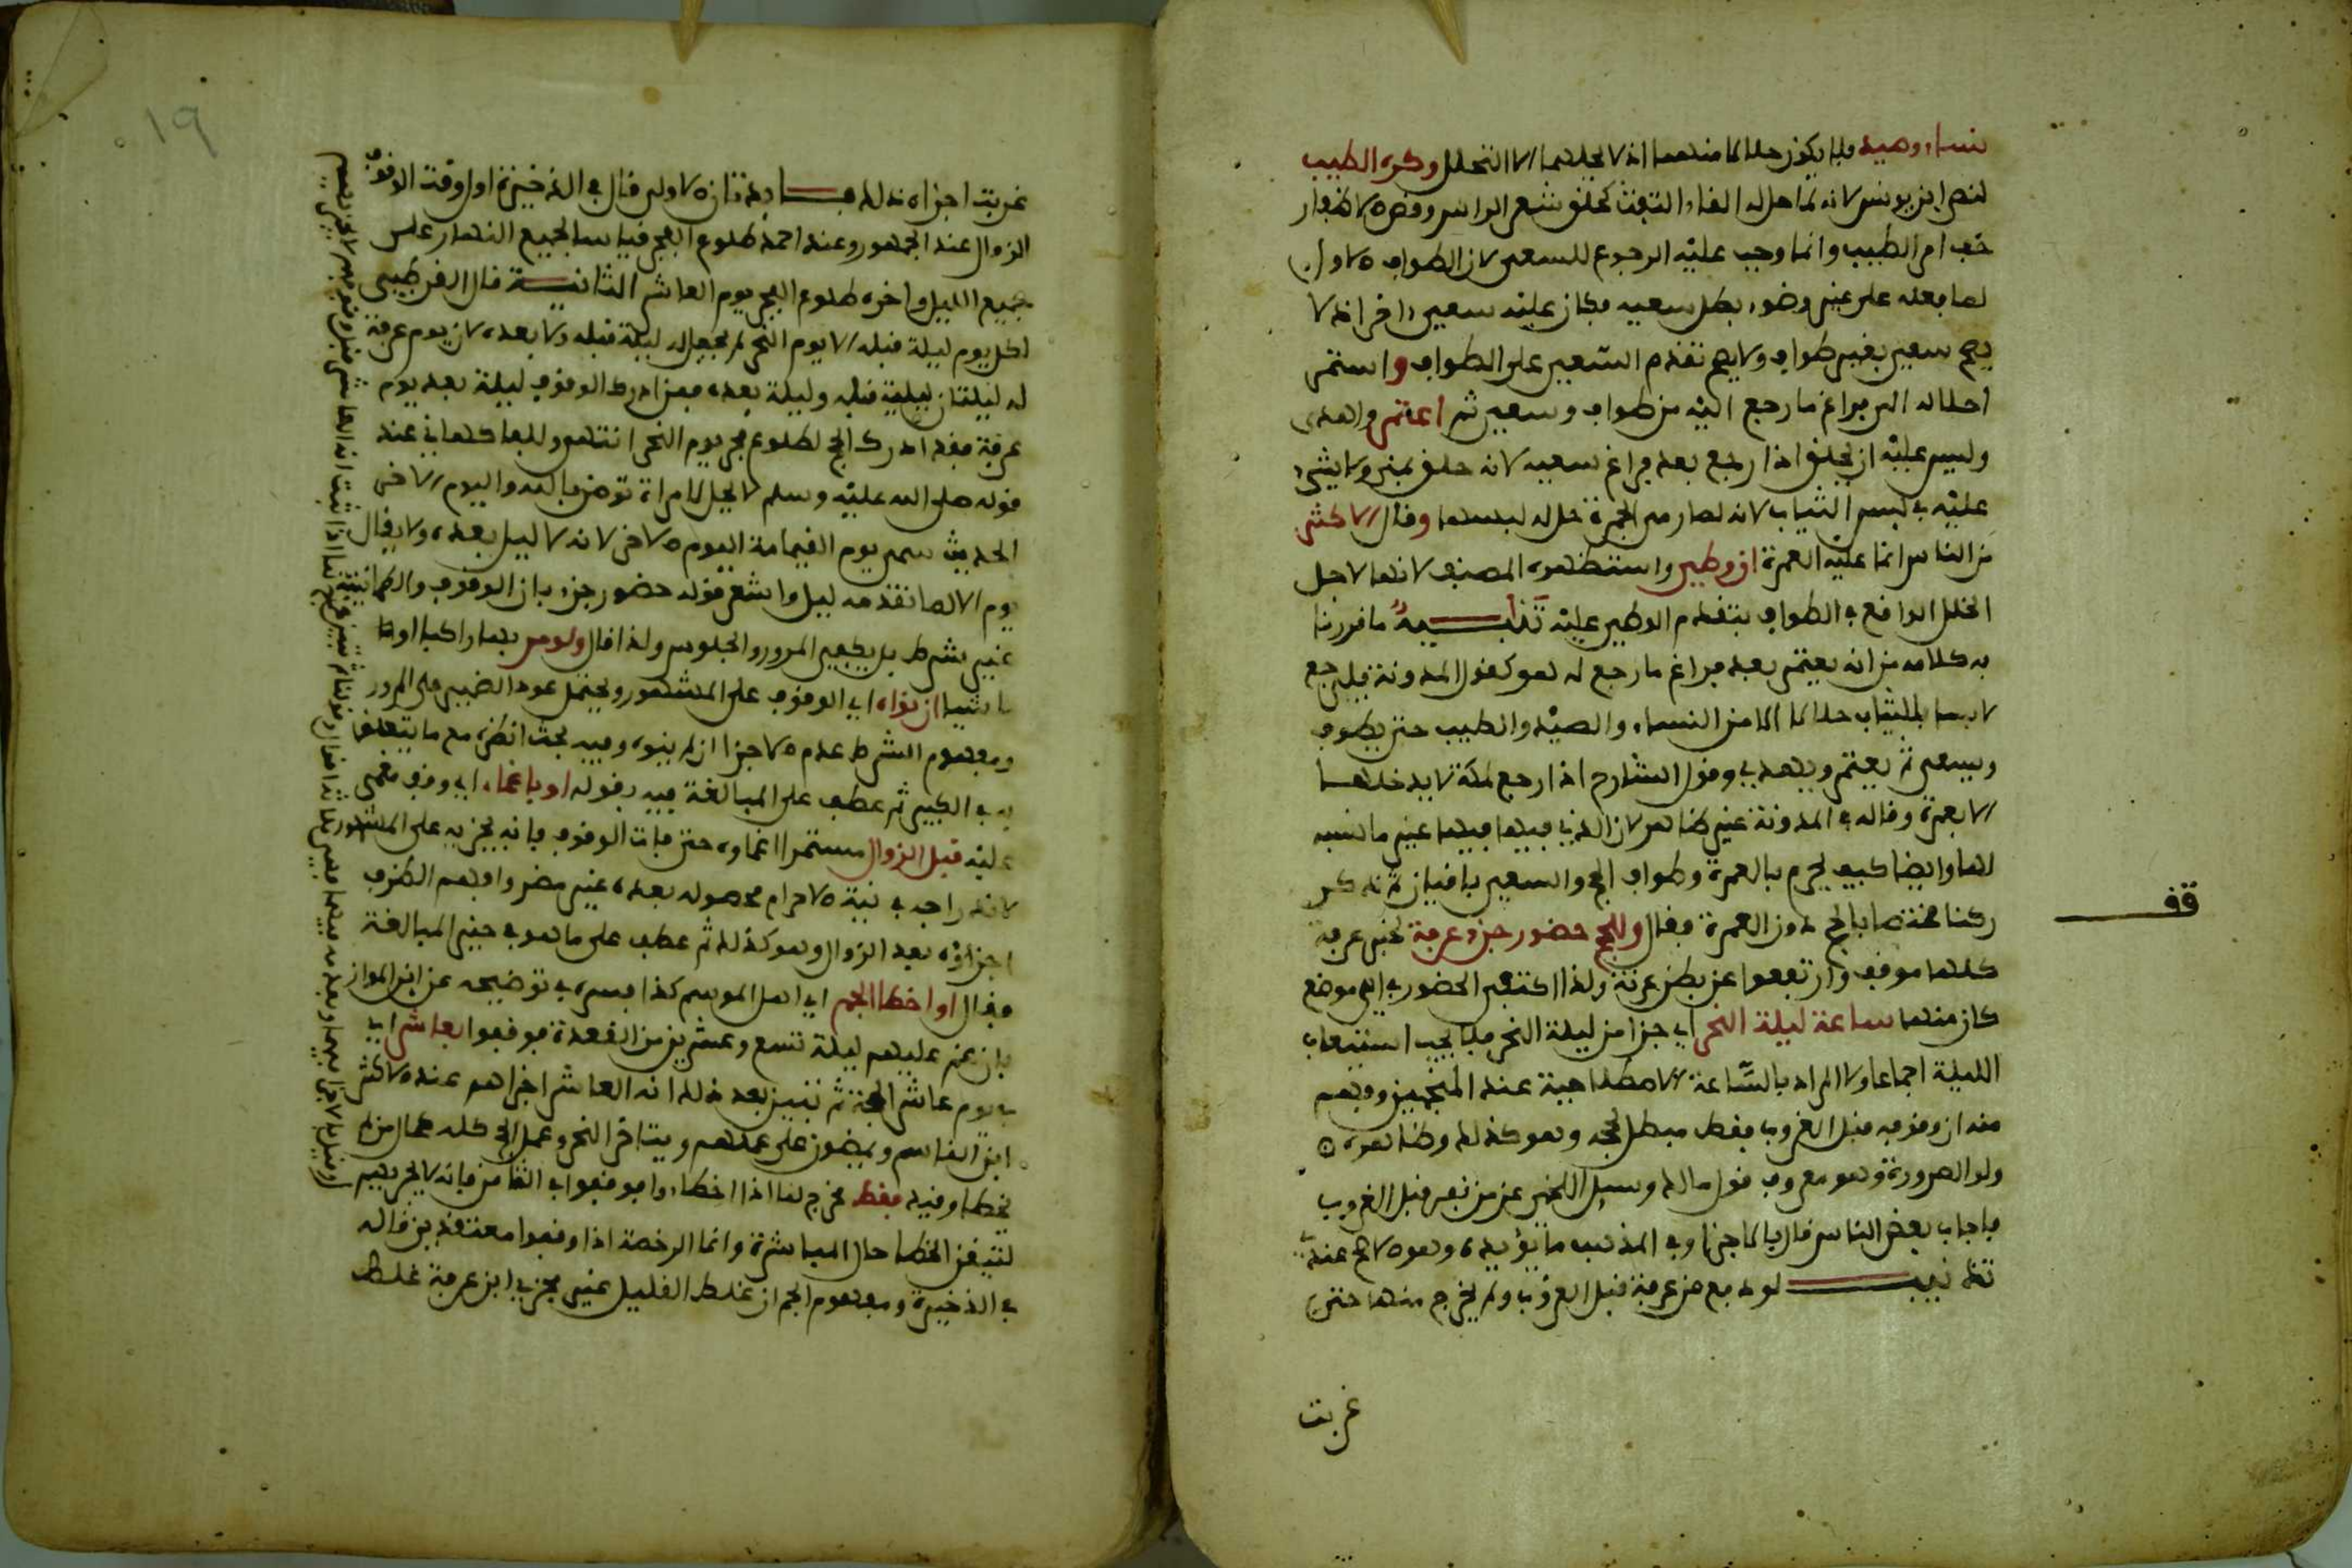 نساء وصيد فلا يكون حلالا منهما اذ لا يحلهما الا التحلل وكره الطيب
لنص ابن يونس لانه لما حل له القاء التفث كحلق شعر الراس وقص الاظفار
خف امر الطيب وانما وجب عليه الرجوع للسعي لان الطواف الاول
لما فعله على غير وضوء بطل سعيه فكان عليه سعي اخر اذ لا
يصح سعي بغير طواف ولا يصح تقدم السعي على الطواف واستمر
احلاله الى فراغ ما رجع اليه من طواف وسعي ثم اعتمر واهدى
وليس عليه ان يحلق اذا رجع بعد فراغ سعيه لانه حلق بمنى ولا شيء
عليه في لبس الثياب لانه لما رمى الجمرة حل له لبسها وقال الاكثر
من الناس انما عليه العمرة ان وطئ واستظهره المصنف لانها لاجل
الخلل الواقع في الطواف بتقدم الوطئ عليه تنبيه ما قررنا
به كلامه من انه يعتمر بعد فراغ ما رجع له هو كقول المدونة فليرجع
لابسا للثياب حلالا الا من النساء والصيد والطيب حتى يطوف
ويسعى ثم يعتمر ويهدي وقول الشارح اذا رجع لمكة لا يدخلها
الا بعمرة وقاله في المدونة غير ظاهر لان الذي فيها فيها غير ما نسبه
لها وايضا كيف يحرم بالعمرة وطواف الحج والسعي باقيان ثم ذكر
ركنا مختصا بالحج دون العمرة فقال وللحج حضور جزء عرفة لخبر عرفة
كلها موقف وارتفعوا عن بطن عرنة ولذا اكتفي الحضور في اي موضع
كان منها ساعة ليلة النحر اي جزا من ليلة النحر فلا يجب استيعاب
الليلة اجماعا ولا المراد بالساعة الاصطلاحية عند المنجمين وفهم
منه ان وقوفه قبل الغروب فقط مبطل لحجه وهو كذلك وظاهره
ولو الصرورة وهو معروف قول مالك وسيل اللخمي عمن نفر قبل الغروب
فاجاب بعض الناس قال بالاجزا وفي المذهب ما يؤيده وهو الاصح عنده
تنبيه لو دفع من عرفة قبل الغروب ولم يخرج منها حتى
غربت
قف
١٩
غربت اجزاه ذلك فايدتان الاولى قال في الذخيرة اول وقت الوقوف
الزوال عند الجمهور وعند احمد طلوع الفجر قياسا لجميع النهار على
جميع الليل واخره طلوع الفجر يوم العاشر الثانية قال القرطبي
لكل يوم ليلة قبله الا يوم النحر لم يجعل له ليلة قبله ولا بعده لان يوم عرفة
له ليلتان ليلة قبله وليلة بعده فمن ادرك الوقوف ليلة بعد يوم
عرفة فقد ادرك الحج لطلوع فجر يوم النحر انتهى وللفاكهاني عند
قوله صلى الله عليه وسلم لا يحل لامراة تومن بالله واليوم الاخر
الحديث سمى يوم القيامة اليوم الاخر لانه لا ليل بعده ولا يقال
يوم الا لما تقدمه ليل واشعر قوله حضور جزء بان الوقوف والطمانينة
غير شرط بل يكفي المرور والجلوس ولذا قال ولو مر بها راكبا او
ماشيا ان نواه اي الوقوف على المشهور ويحتمل عود الضمير على المرور
ومفهوم الشرط عدم الاجزا ان لم ينوه وفيه بحث انظره مع ما يتعلق
به في الكبير ثم عطف على المبالغة فيه بقوله او باغماء اي وقف مغمى
عليه قبل الزوال مستمرا اغماوه حتى فات الوقوف فانه يجزيه على المشهور
لاندراجه في نية الاحرام فحصوله بعده غير مضر وافهم الظرف
اجزاؤه بعد الزوال وهو كذلك ثم عطف على ما هو في حيز المبالغة
فقال او اخطا الجم اي اهل الموسم كذا فسره في توضيحه عن ابن المواز
بان غم عليهم ليلة تسع وعشرين من القعدة فوقفوا بعاشر اي
في يوم عاشر الحجة ثم تبين بعد ذلك انه العاشر اجزاهم عند الاكثر
ابن القاسم ويمضون على عملهم ويتاخر النحر وعمل الحج كله كحال من لم
يخط وقيد فقط مخرج لما اذا اخطاوا فوقفوا في الثامن فانه لا يجزيهم
لتيقن الخطا حال المباشرة وانما الرخصة اذا وقفوا معتقدين قاله
في الذخيرة ومفهوم الجم ان غلط القليل غير مجزي ابن عرفة غلط